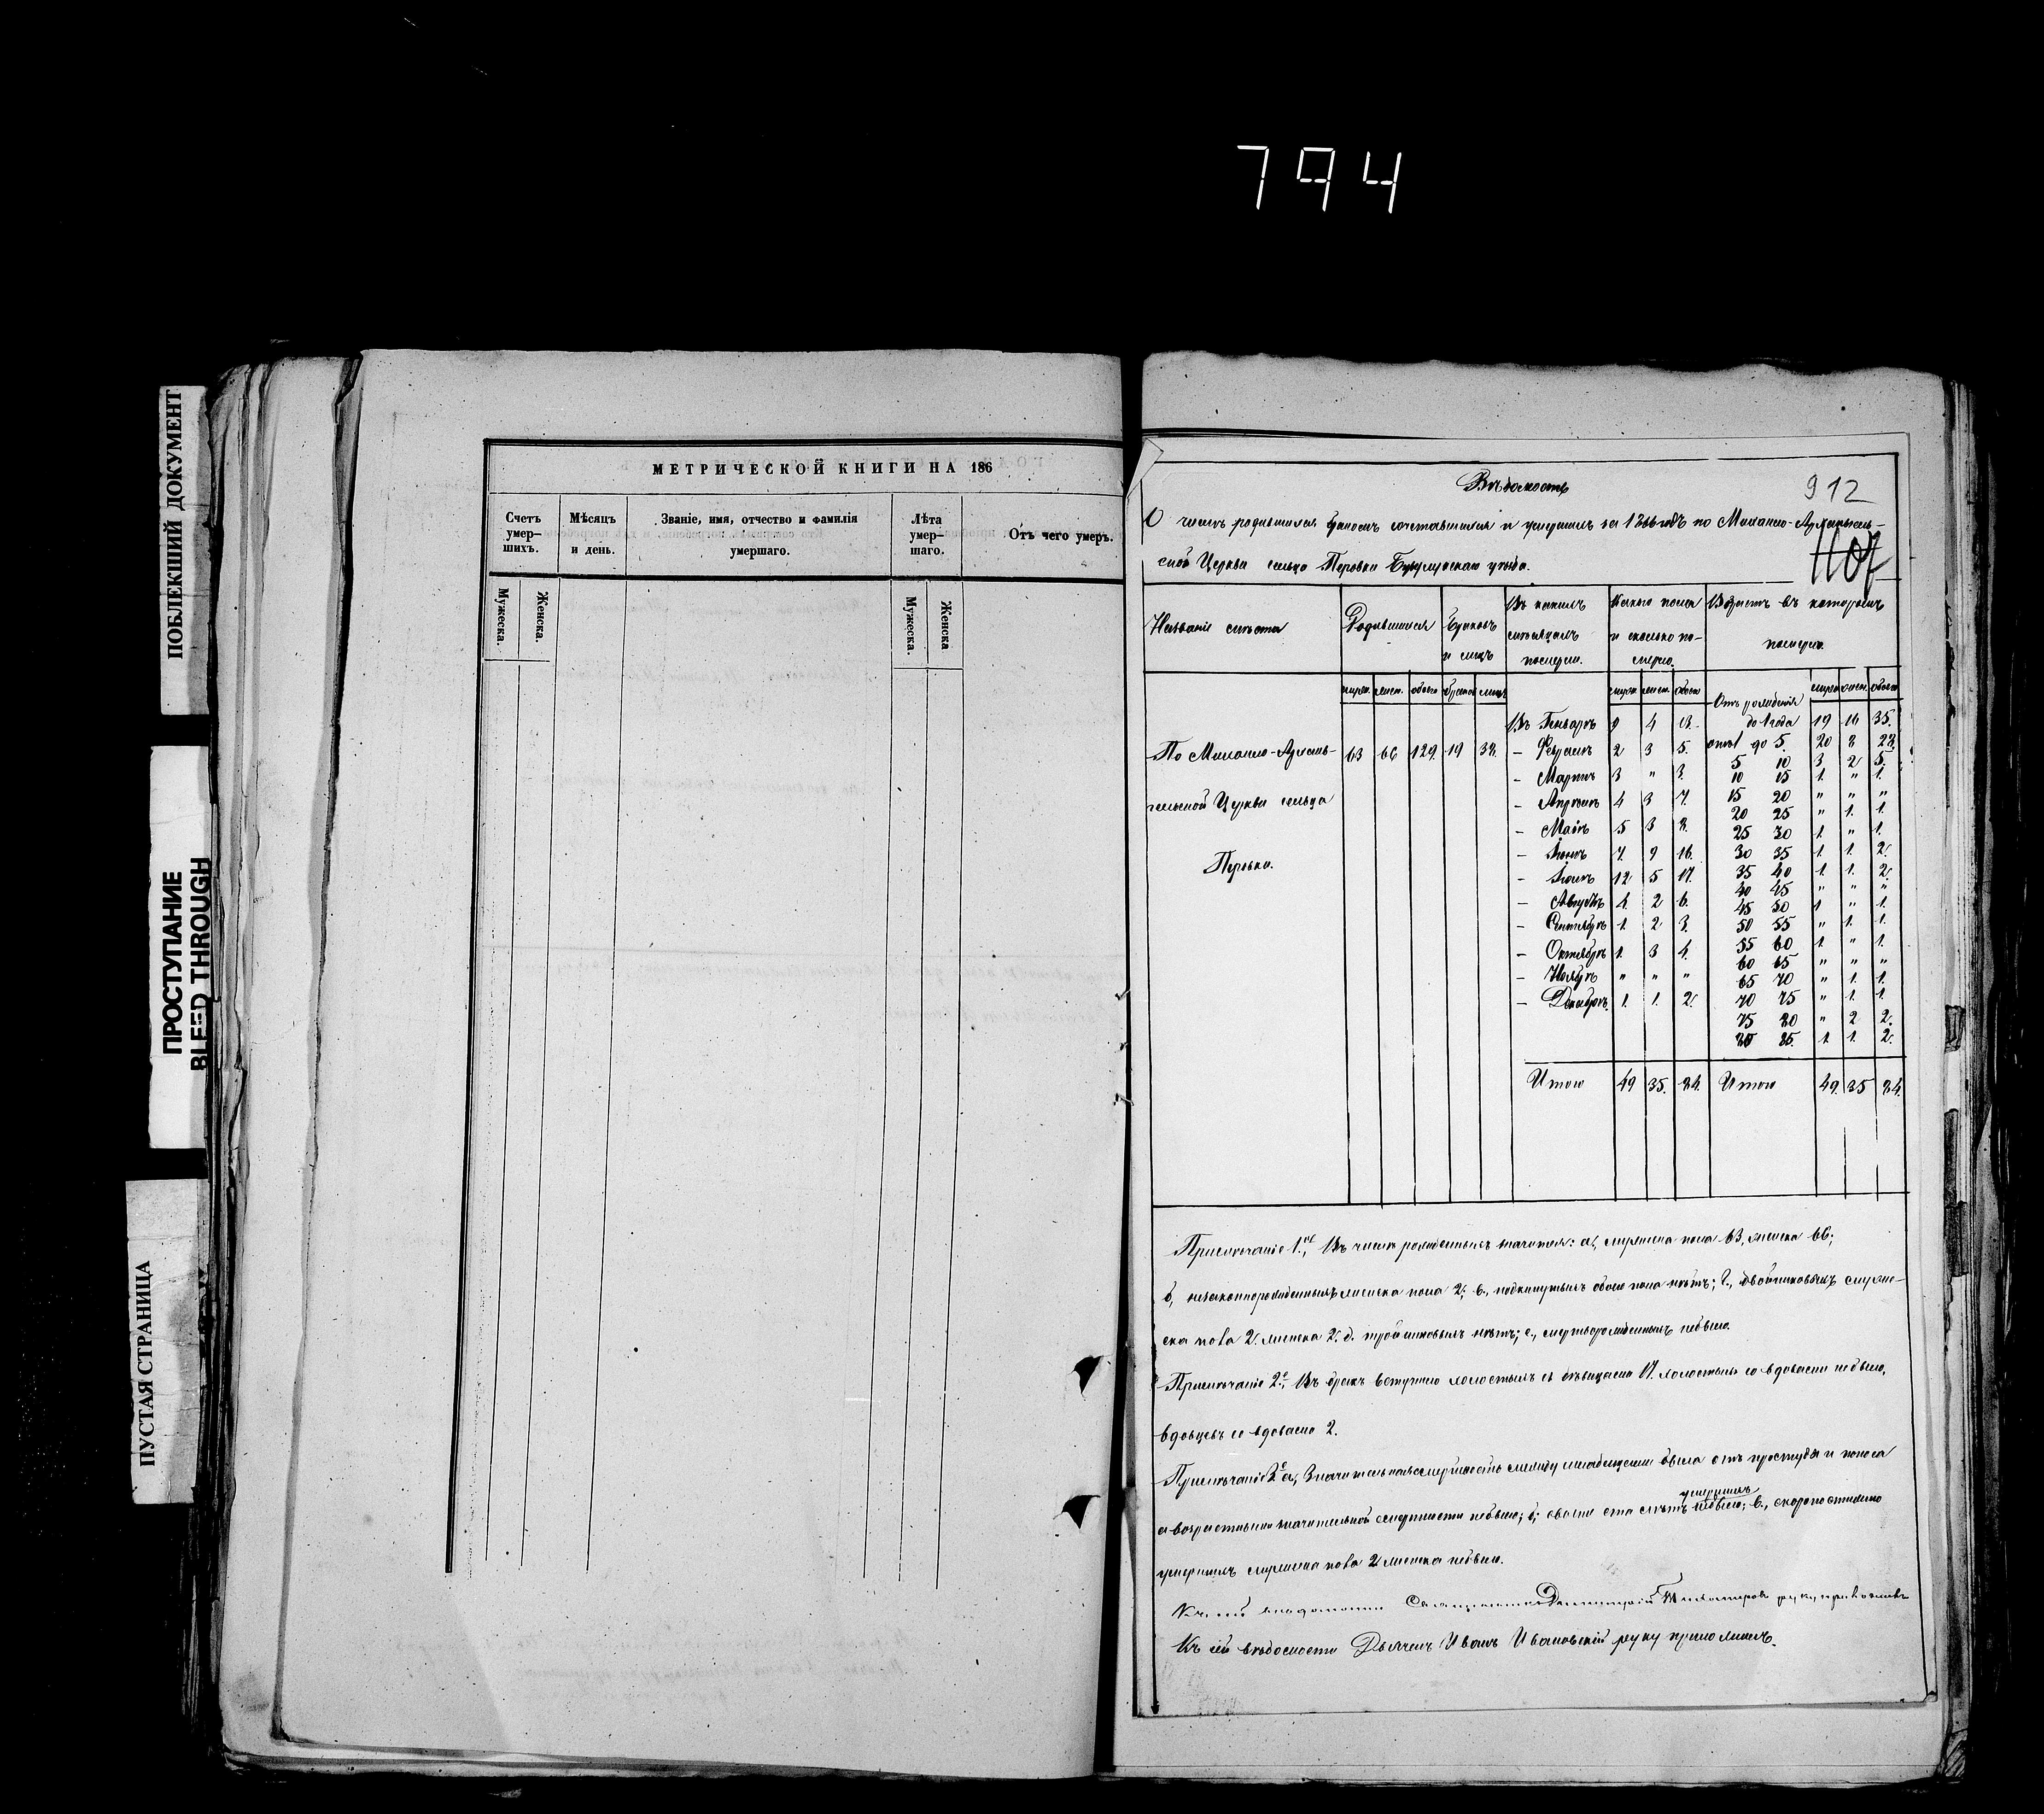 794
ПОБЛЕКШИЙ ДОКУМЕНТ
ПРОСТУПАНИЕ
BLEED THROUGH
ПУСТАЯ СТРАНИЦА
МЕТРИЧЕСКОЙ КНИГИ НА 186
Счетъ умер–шихъ.
Мѣсяцъ и день.
Званіе, имя, отчество и фамилія умершаго.
Лѣта умер–шаго.
Отъ чего умеръ.
Мужеска. Женска. Мужеска. Женска
912
Вѣдомость
О числѣ родившихся браковъ сочетавшихся и умершихъ за 1866 годъ по Михаило-Архангель-
ской Церкви сельца Перовки уѣзда.
1107
Названіе мѣста
Родившихся
Браковъ и лицъ
Въ какихъ мѣсяцахъ померли.
Какого пола и сколько по-мерло.
Возрастъ въ которомъ померли.
мужск. женск. обоего браковъ лицъ мужск. женск. обоего мужск. женск. обоего
По Михаило-Архан-
гельской Церкви сельца
Перовки.
63 66 129. 19 38.
Въ Генварѣ 9 4 13.
– Февралѣ 2 3 5.
– Мартѣ 3 „ 3.
– Апрѣлѣ 4 3 7.
– Маѣ 5 3 8.
– Іюнѣ 7. 9 16.
– Іюлѣ 12 5 17.
– Августѣ 4. 2 6.
– Сентябрѣ 1. 2 3.
– Октябрѣ 1. 3 4.
– Ноябрѣ „ „ „
– Декабрѣ 1. 1. 2.
Итого 49 35. 84.
Отъ рожденія
до 1 года 19 16 35.
отъ 1 до 5. 20 8 28.
5 10 3 2 5.
10 15 1. „ 1.
15 20 „ „ „
20 25 „ 1. 1.
25 30 1. „ 1.
30 35 1. 1. 2.
35 40 1 1. 2.
40 45 „ „ „
45 50 1 „ 1.
50 55 „ 1. 1.
55 60 1. „ 1.
60 65 „ „ „
65 70 „ 1. 1.
70 75 „ 1. 1.
75 80 „ 2 2.
80 85. 1. 1. 2.
Итого 49. 35 84.
Примѣчаніе 1.е, Въ числѣ рожденныхъ значится: а, мужеска пола 63, женска 66;
б, незаконнорожденныхъ женска пола 2; в., подкинутыхъ обоего пола нѣтъ; г., двойниковыхъ муже-
ска пола 2. женска 2. д. тройниковыхъ нѣтъ; е., мертворожденныхъ небыло.
Примѣчаніе 2е, Въ бракъ вступило холостыхъ съ дѣвицами 17. холостыхъ со вдовами небыло,
вдовцевъ со вдовами 2.
Примѣчаніе а, Значительная смертность между младенцами была отъ простуды и поноса
а возрастными значительной смертности небыло; б; свыше ста лѣтъ умершихъ небыло; в., скоропостижно
умершихъ мужеска пола 2 женска небыло.
Къ сей вѣдомости Священникъ Димитрій Тихомировъ руку приложилъ
Къ сей вѣдомости Дьячекъ Иванъ Ивановскій руку приложилъ.